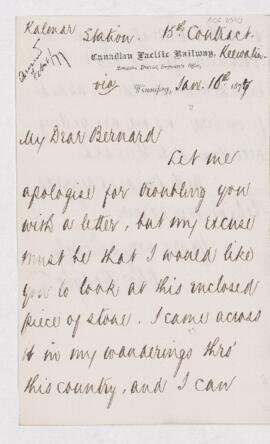 Kalmar Station 15th Contract.
Canadian Pacific Railway, Keewatin
Engineer's Office,
via Winnipeg, Jan. 10th 1879
My Dear Bernard
Let me
apologise for troubling you
with a letter, but my excuse
must be that I would like
you to look at this enclosed
piece of stone. I came across
it in my wanderings thro'
this country, and I can